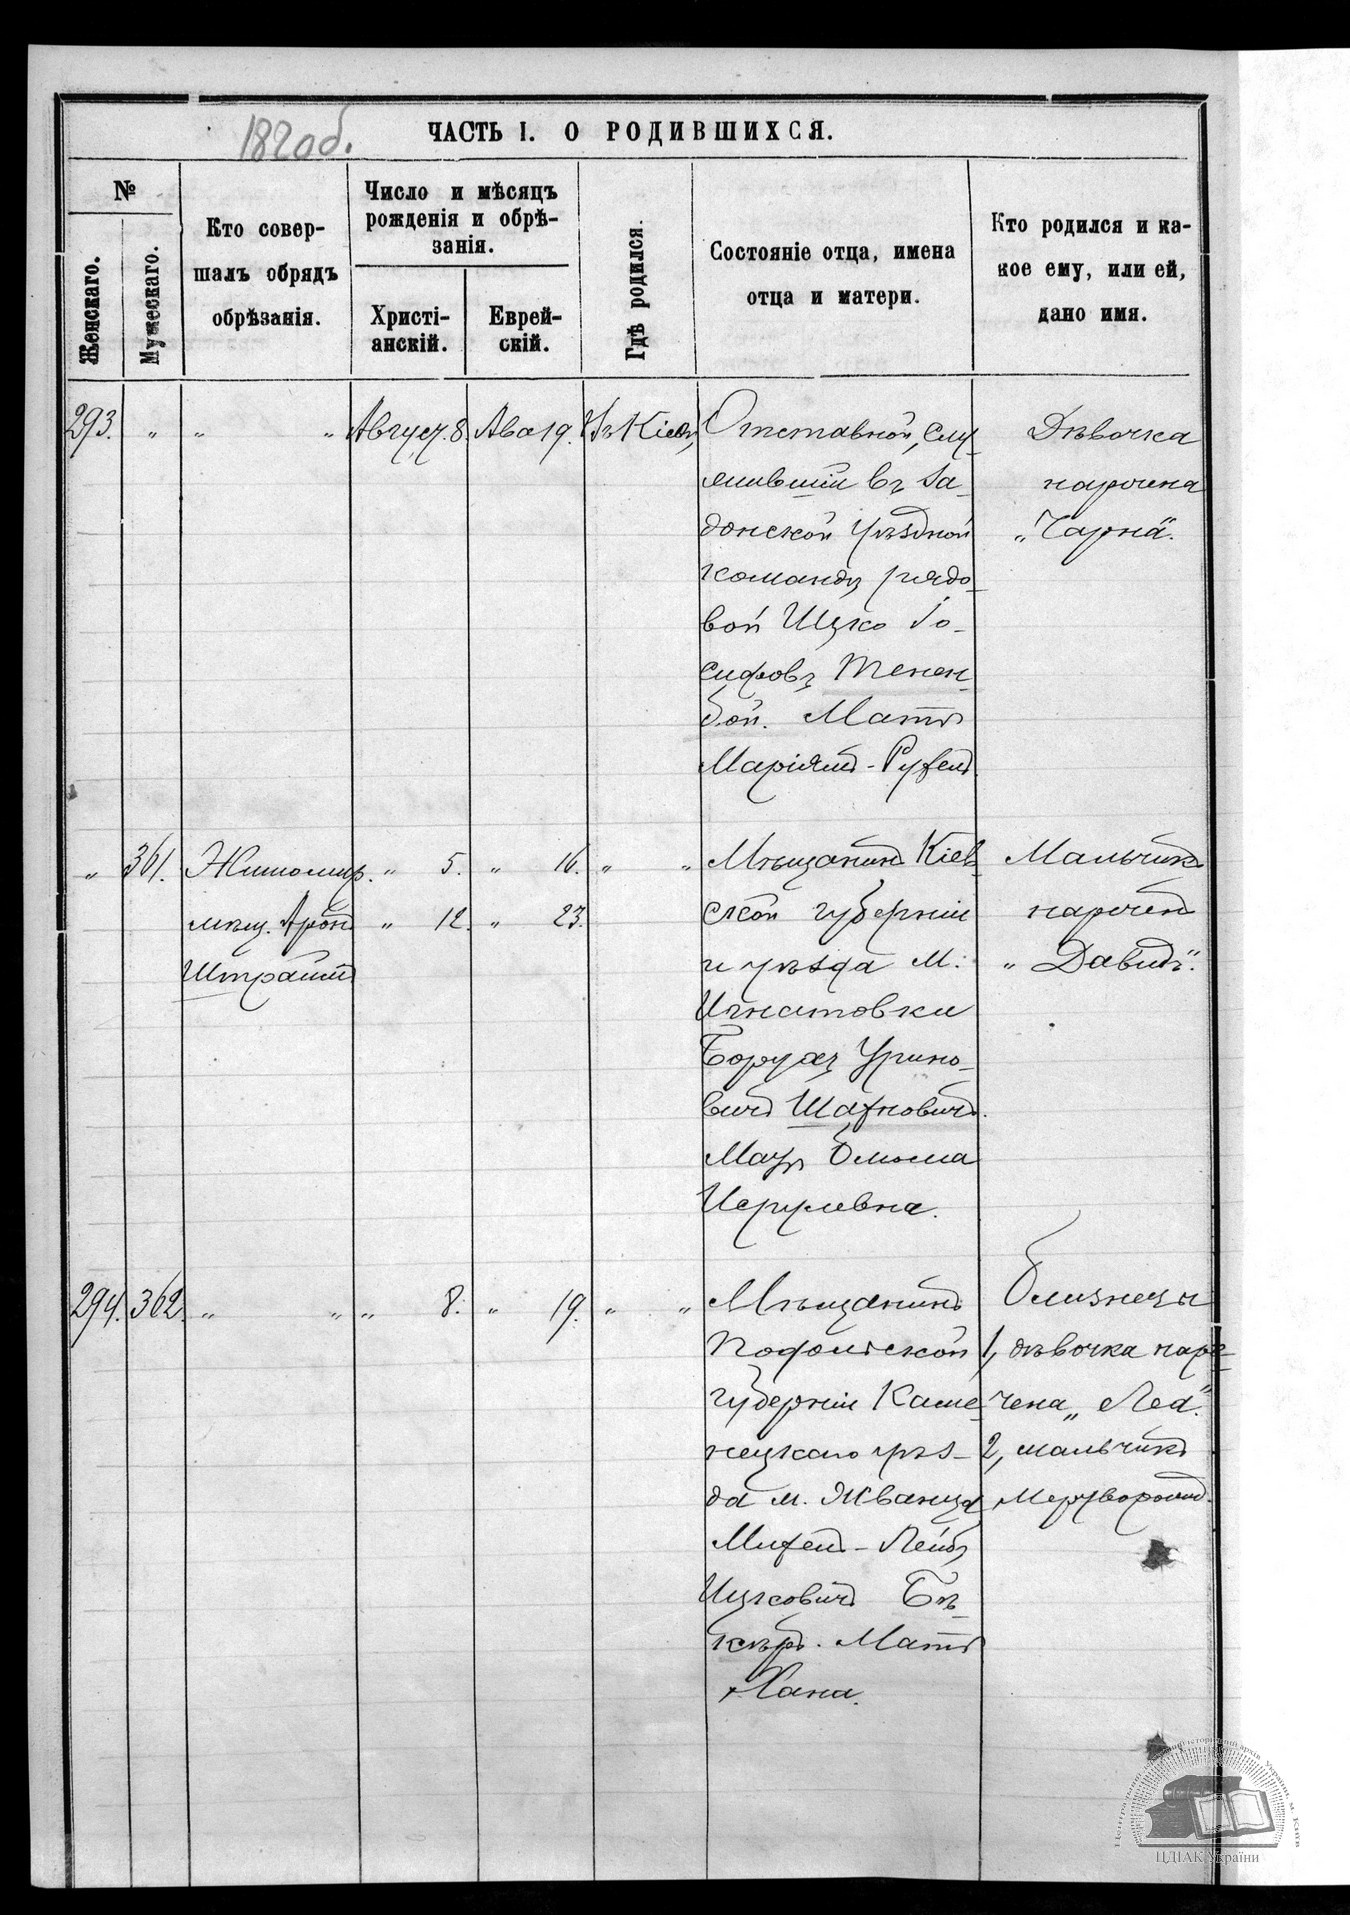 182об.
ЧАСТЬ I. О РОДИВШИХСЯ.
№
Женскаго.
Мужескаго.
Кто совер-
шалъ обрядъ
обрѣзанія.
Число и мѣсяцъ
рожденія и обрѣ-
занія.
Христі-
анскій.
Еврей-
скій.
Гдѣ родился.
Состояніе отца, имена
отца и матери.
Кто родился и ка-
кое ему, или ей,
дано имя.
293. " " " Август. 8. Ава 19. Въ Кіевѣ
Отставной, слу-
жившій въ За-
донской уѣздной
командѣ рядо-
вой Ицко Іо-
сифовъ Тенен-
бой. Мать
Маріямъ-Рухель
Дѣвочка
наречена
"Чарна".
" 361. Житомир. " 5. " 16. " "
мѣщ. Аронъ " 12. " 23.
Штраймъ
Мѣщанинъ Кіев-
ской губерніи
и уѣзда м.
Игнатовки
Борухъ Урино-
вичъ Шахновичъ.
Мать Блюма
Исрулевна.
Мальчикъ
нареченъ
"Давидъ".
294. 362. " " " 8. " 19. " "
Мѣщанинъ
Подольской
губерніи Каме-
нецкаго уѣз-
да м. Жванца
Михель-Лейбъ
Ицковичъ Бѣ-
керъ. Мать
Хана.
Близнецы
1, дѣвочка наре-
чена "Леа".
2, мальчикъ
мертворожд.
ЦДІАК України